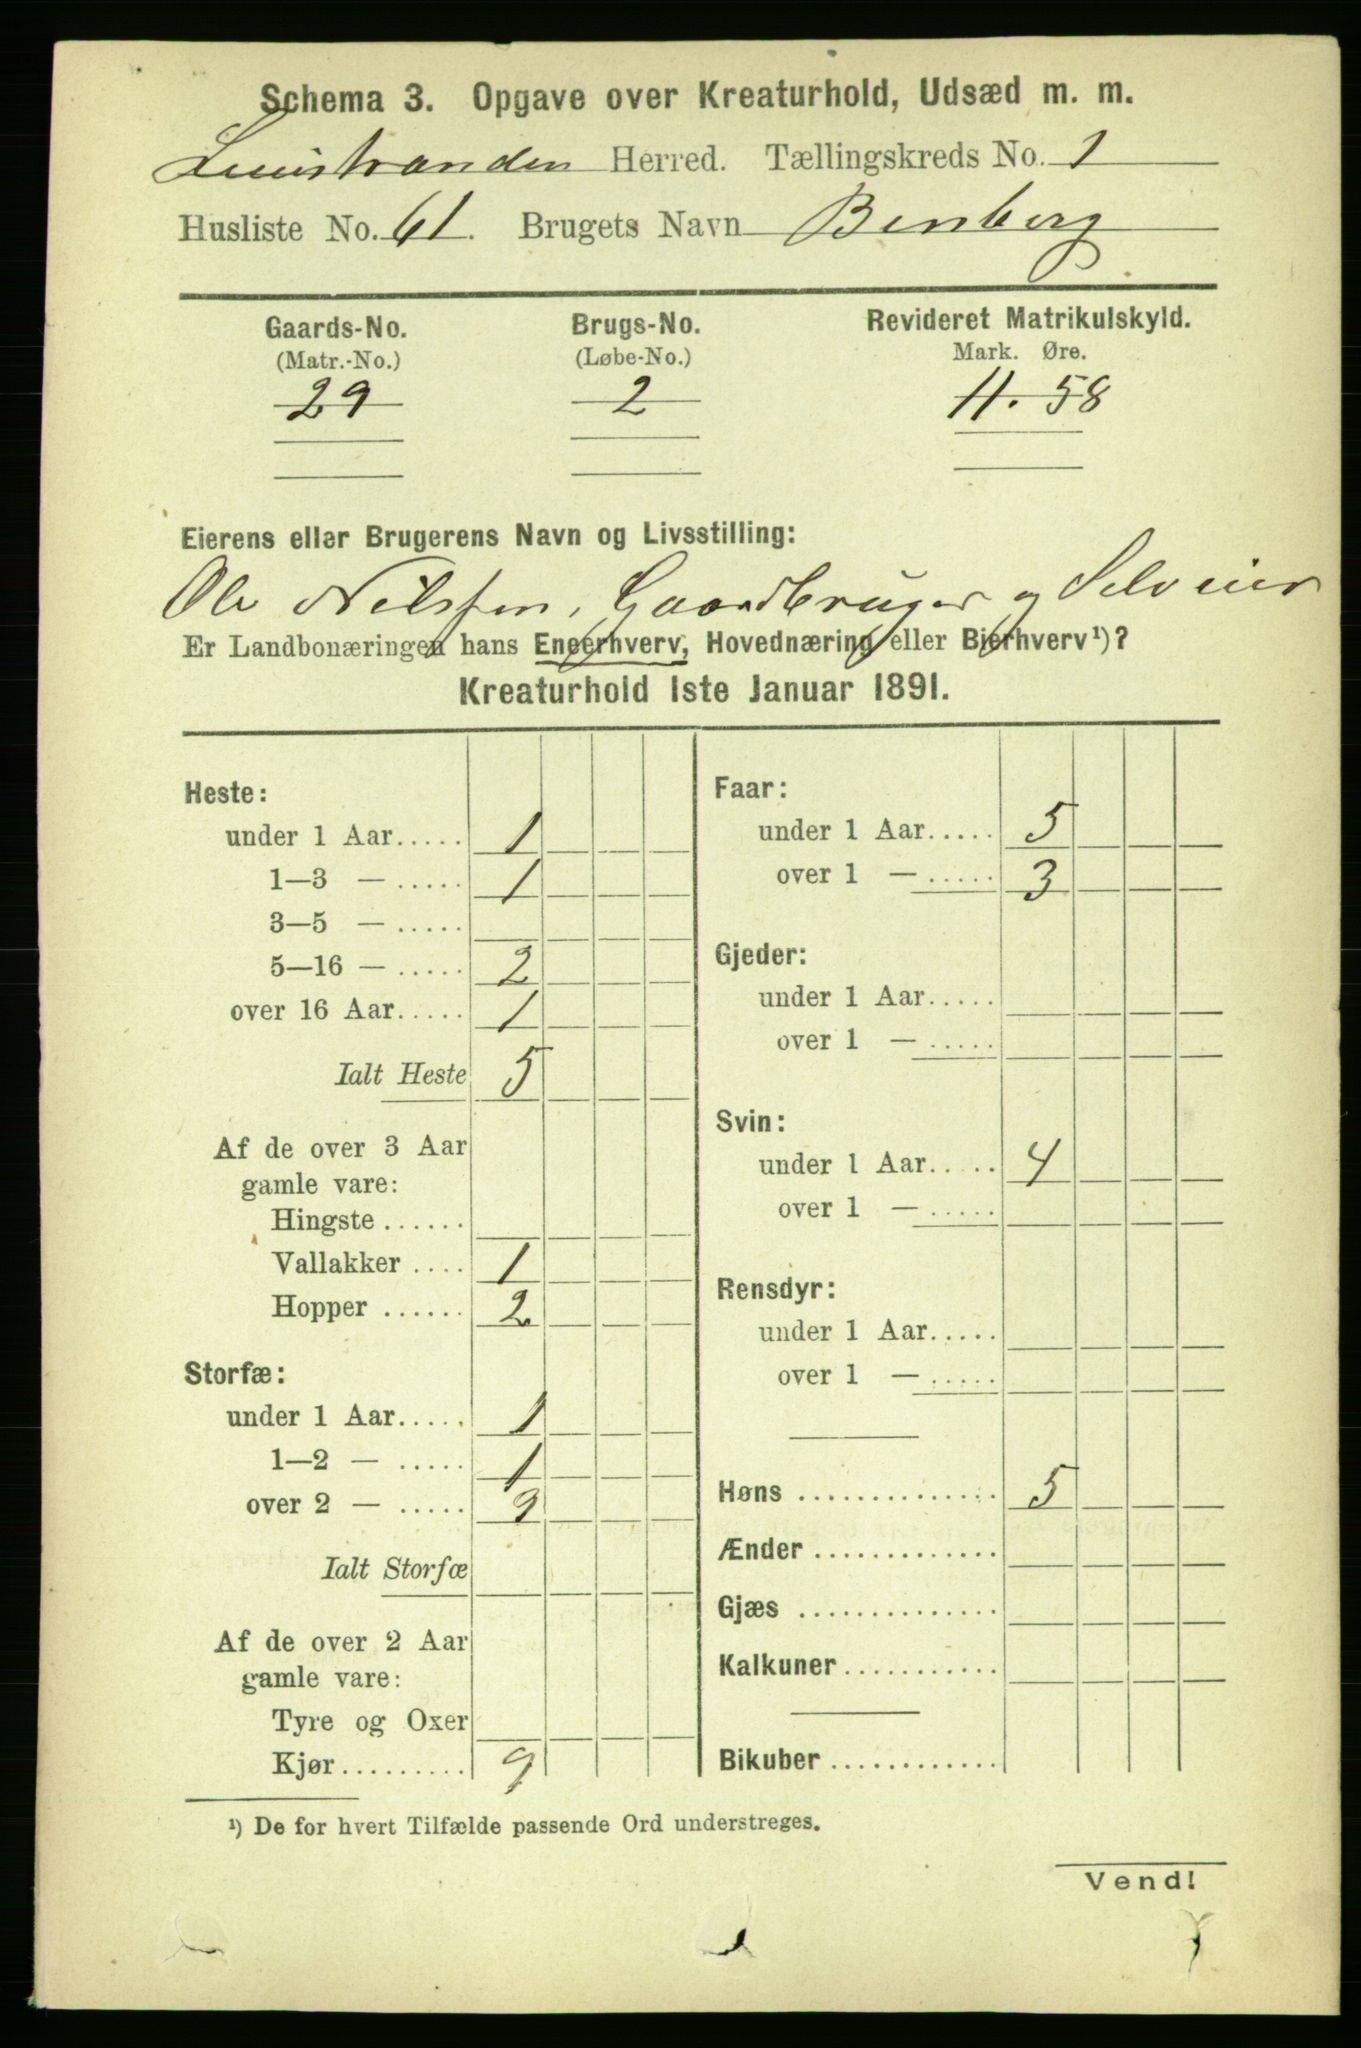 Schema 3. Opgave over Kreaturhold, Udsæd m. m.
Leinstranden Herred. Tællingskreds No. 1
Husliste No. 61. Brugets Navn Benberg
Gaards-No. Brugs-No. Revideret Matrikulskyld.
(Matr.-No.) (Løbe-No.) Mark. Øre.
29 2 11. 58
Eierens eller Brugerens Navn og Livsstilling:
Ole Nilsen, Gaardbruger og Selveier
Er Landbonæringen hans Eneerhverv, Hovednæring eller Bierhverv¹)?
Kreaturhold 1ste Januar 1891.
Heste:
under 1 Aar..... 1
1—3 — ..... 1
3—5 — .....
5—16 — ..... 2
over 16 Aar..... 1
Ialt Heste 5
Af de over 3 Aar
gamle vare:
Hingste ......
Vallakker .... 1
Hopper ...... 2
Storfæ:
under 1 Aar..... 1
1—2 — ..... 1
over 2 — ..... 9
Ialt Storfæ
Af de over 2 Aar
gamle vare:
Tyre og Oxer
Kjør......... 9
Faar:
under 1 Aar..... 5
over 1 — ..... 3
Gjeder:
under 1 Aar.....
over 1 — .....
Svin:
under 1 Aar..... 4
over 1 — .....
Rensdyr:
under 1 Aar.....
over 1 — .....
Høns .............. 5
Ænder .............
Gjæs ..............
Kalkuner...........
Bikuber ............
¹) De for hvert Tilfælde passende Ord understreges.
Vend!